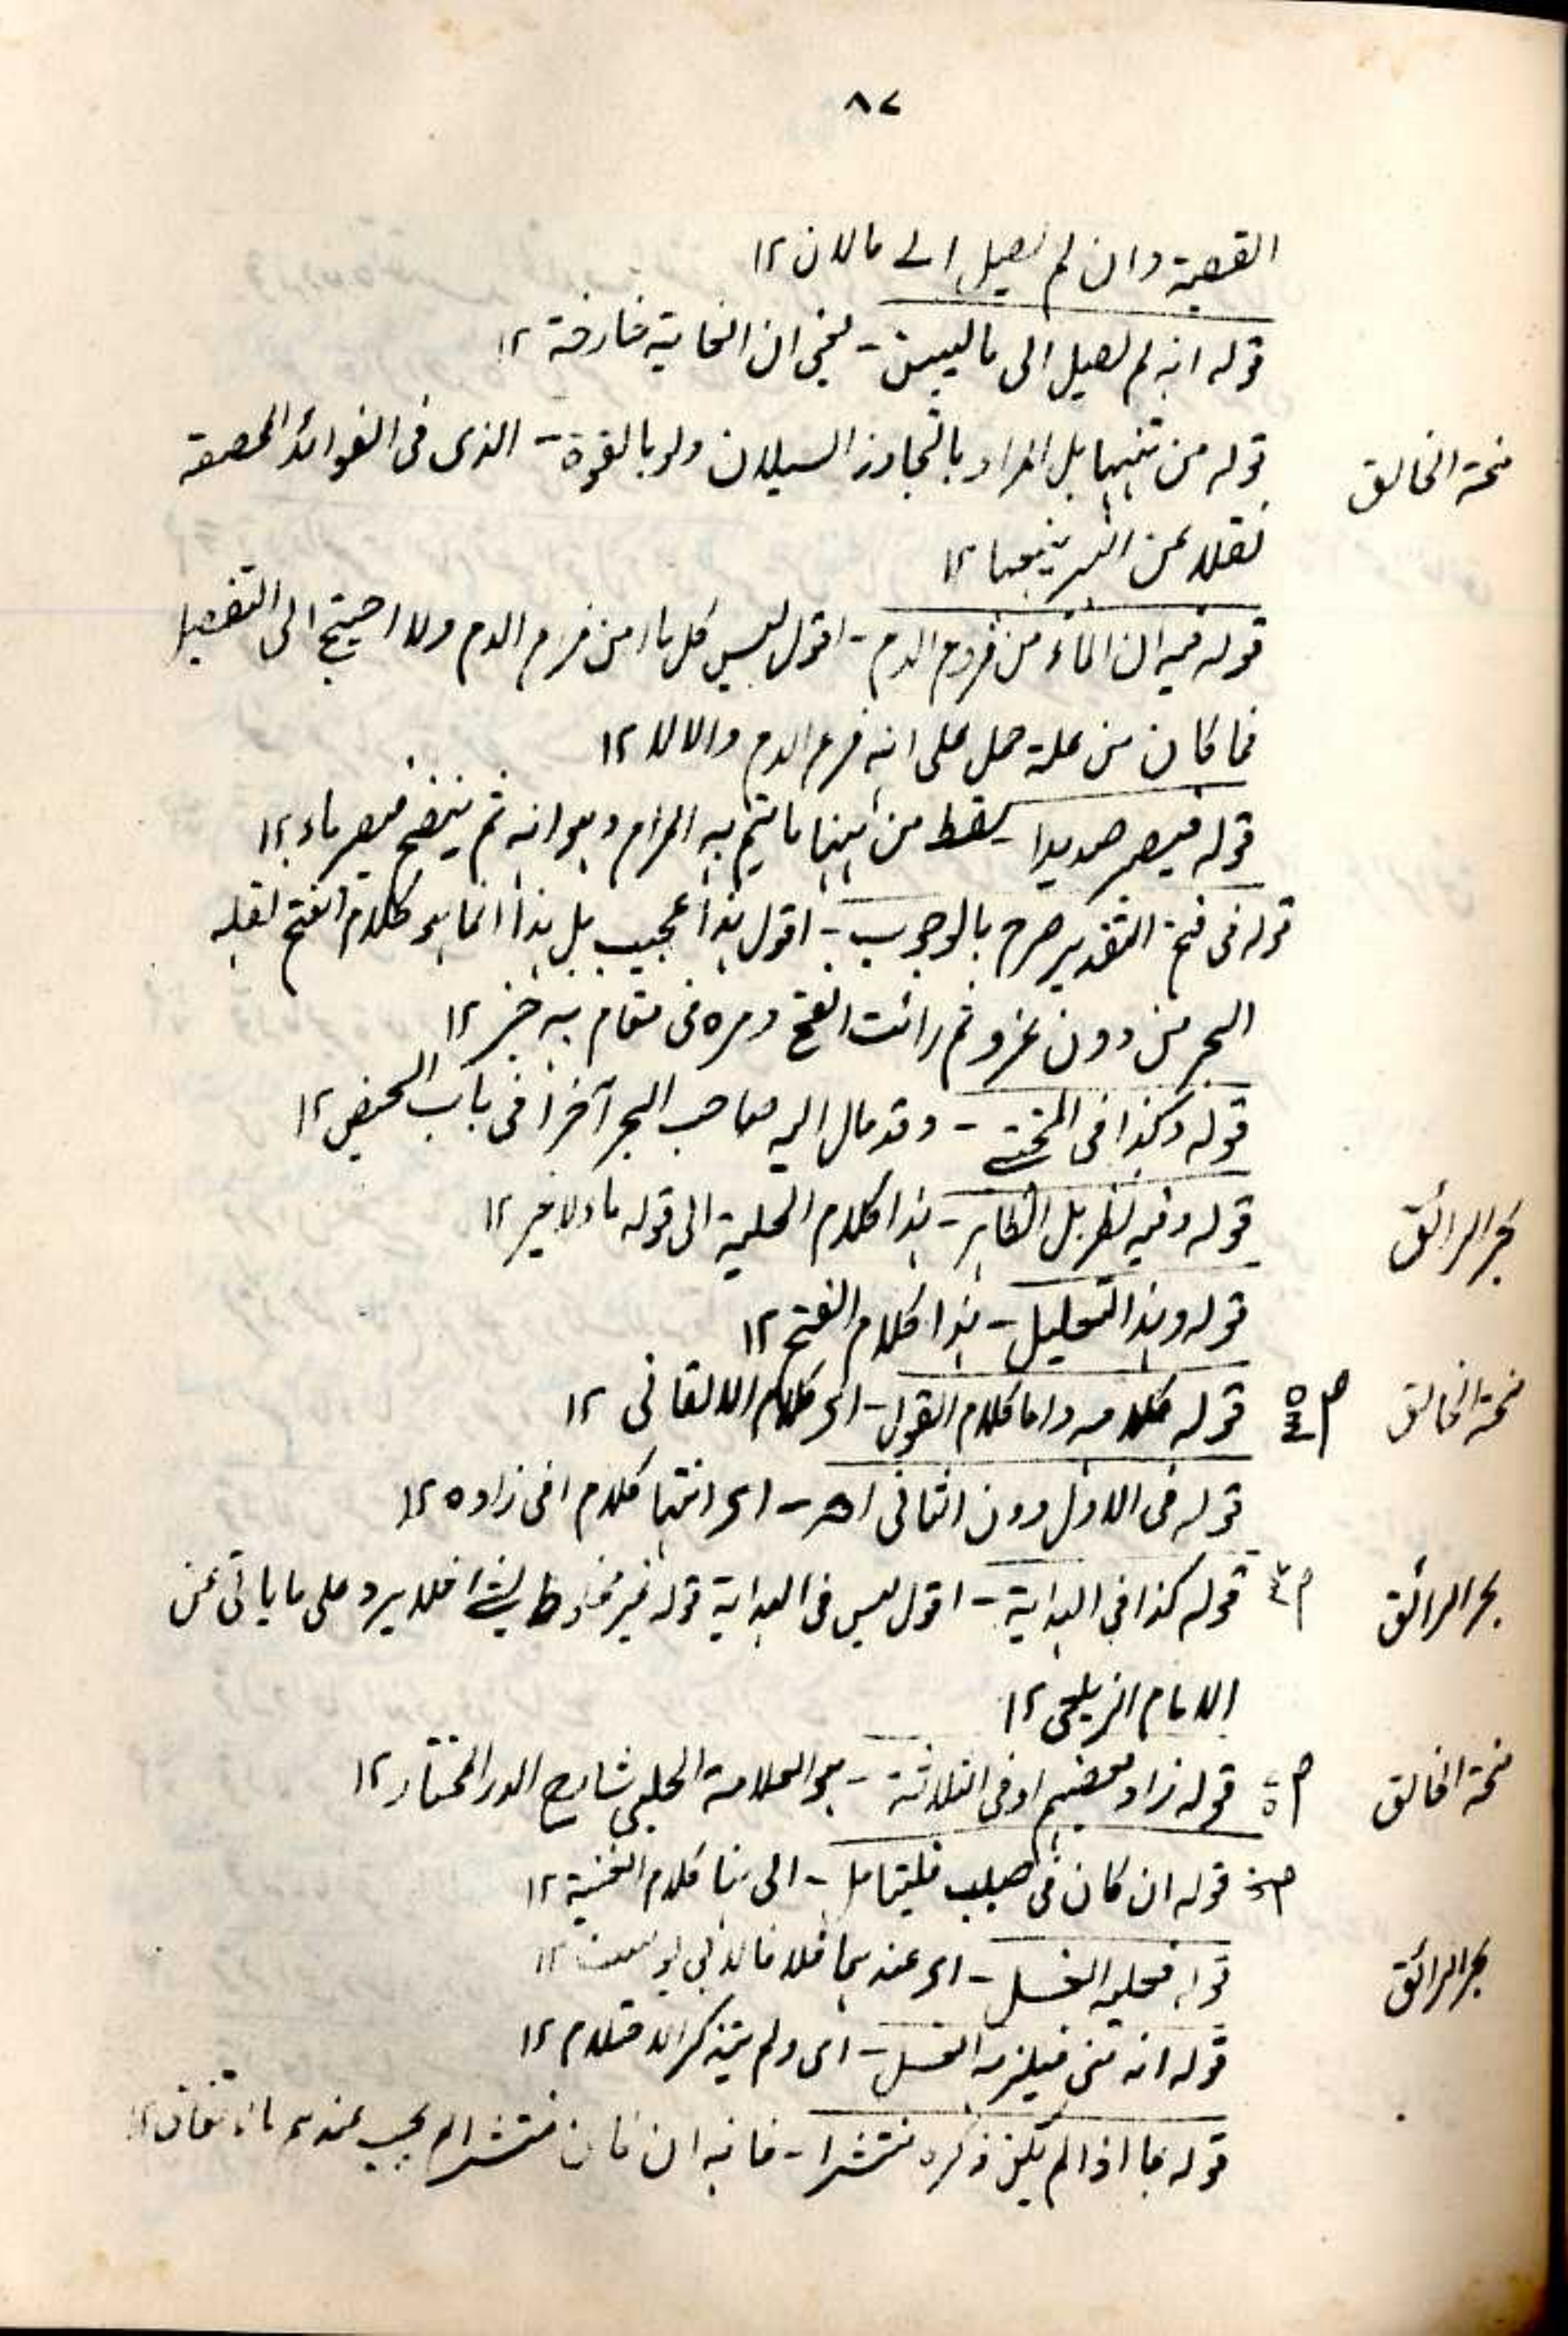 ٨٧
القصبة وان لم يصل الى مالان ١٢
قوله انه لم يصل الى ما ليس - يعنى ان الخانية خارقة ١٢
منحة الخالق
قوله من تنبيه بل المراد بالتجاوز السيلان ولو بالقوة - الذى فى الفوائد المخصصة
نقلا عن الشرنبلالى ١٢
قوله فيه ان الماء من فروع الدم - اقول ليس كل ماء من فروع الدم ولا احتيج الى التفصيل
فما كان من علة حمل على انه فرع الدم والا لا ١٢
قوله فيصير صديدا - سقط من ههنا ما يتم به المرام وهو انه ثم ينضج فيصير ماء ١٢
قوله فى فتح القدير صرح بالوجوب - اقول هذا عجيب بل هذا انما هو كلام الفتح نقله
البحر من دون عزو ثم رأيت الفتح ومره فى مقام به خبر ١٢
قوله وكذا فى المجتبى - وقد مال اليه صاحب البحر آخرا فى باب الحيض ١٢
بحر الرائق
قوله وفيه نظر بل الظاهر - هذا كلام الحلية الى قوله ماء لا غير ١٢
قوله وهذا التعليل - هذا كلام الفتح ١٢
منحة الخالق
قوله كلامه واما كلام القول - اى كلام الاتقانى ١٢
قوله فى الاول دون الثانى اھ - اى انتهى كلام اخى زاده ١٢
بحر الرائق
قوله كذا فى البداية - اقول ليس فى الهداية قوله غير مخلوط بشئ فلا يرد على ما ياتى عن
الامام الزيلعى ١٢
منحة الخالق
قوله زاد بعضهم او فى الثلاثة - هو العلامة الحلبى شارح الدر المختار ١٢
قوله ان كان فى صلب فليتامل - الى هنا كلام الغنية ١٢
بحر الرائق
قوله فعليه الغسل - اى عندهما خلافا لابى يوسف ١٢
قوله انه منى فيلزمه الغسل - اى ولم يتذكر الاحتلام ١٢
قوله بما اذا لم يكن ذكره منتشرا - فانه ان كان منتشرا لم يجب عندهم بالاتفاق ١٢